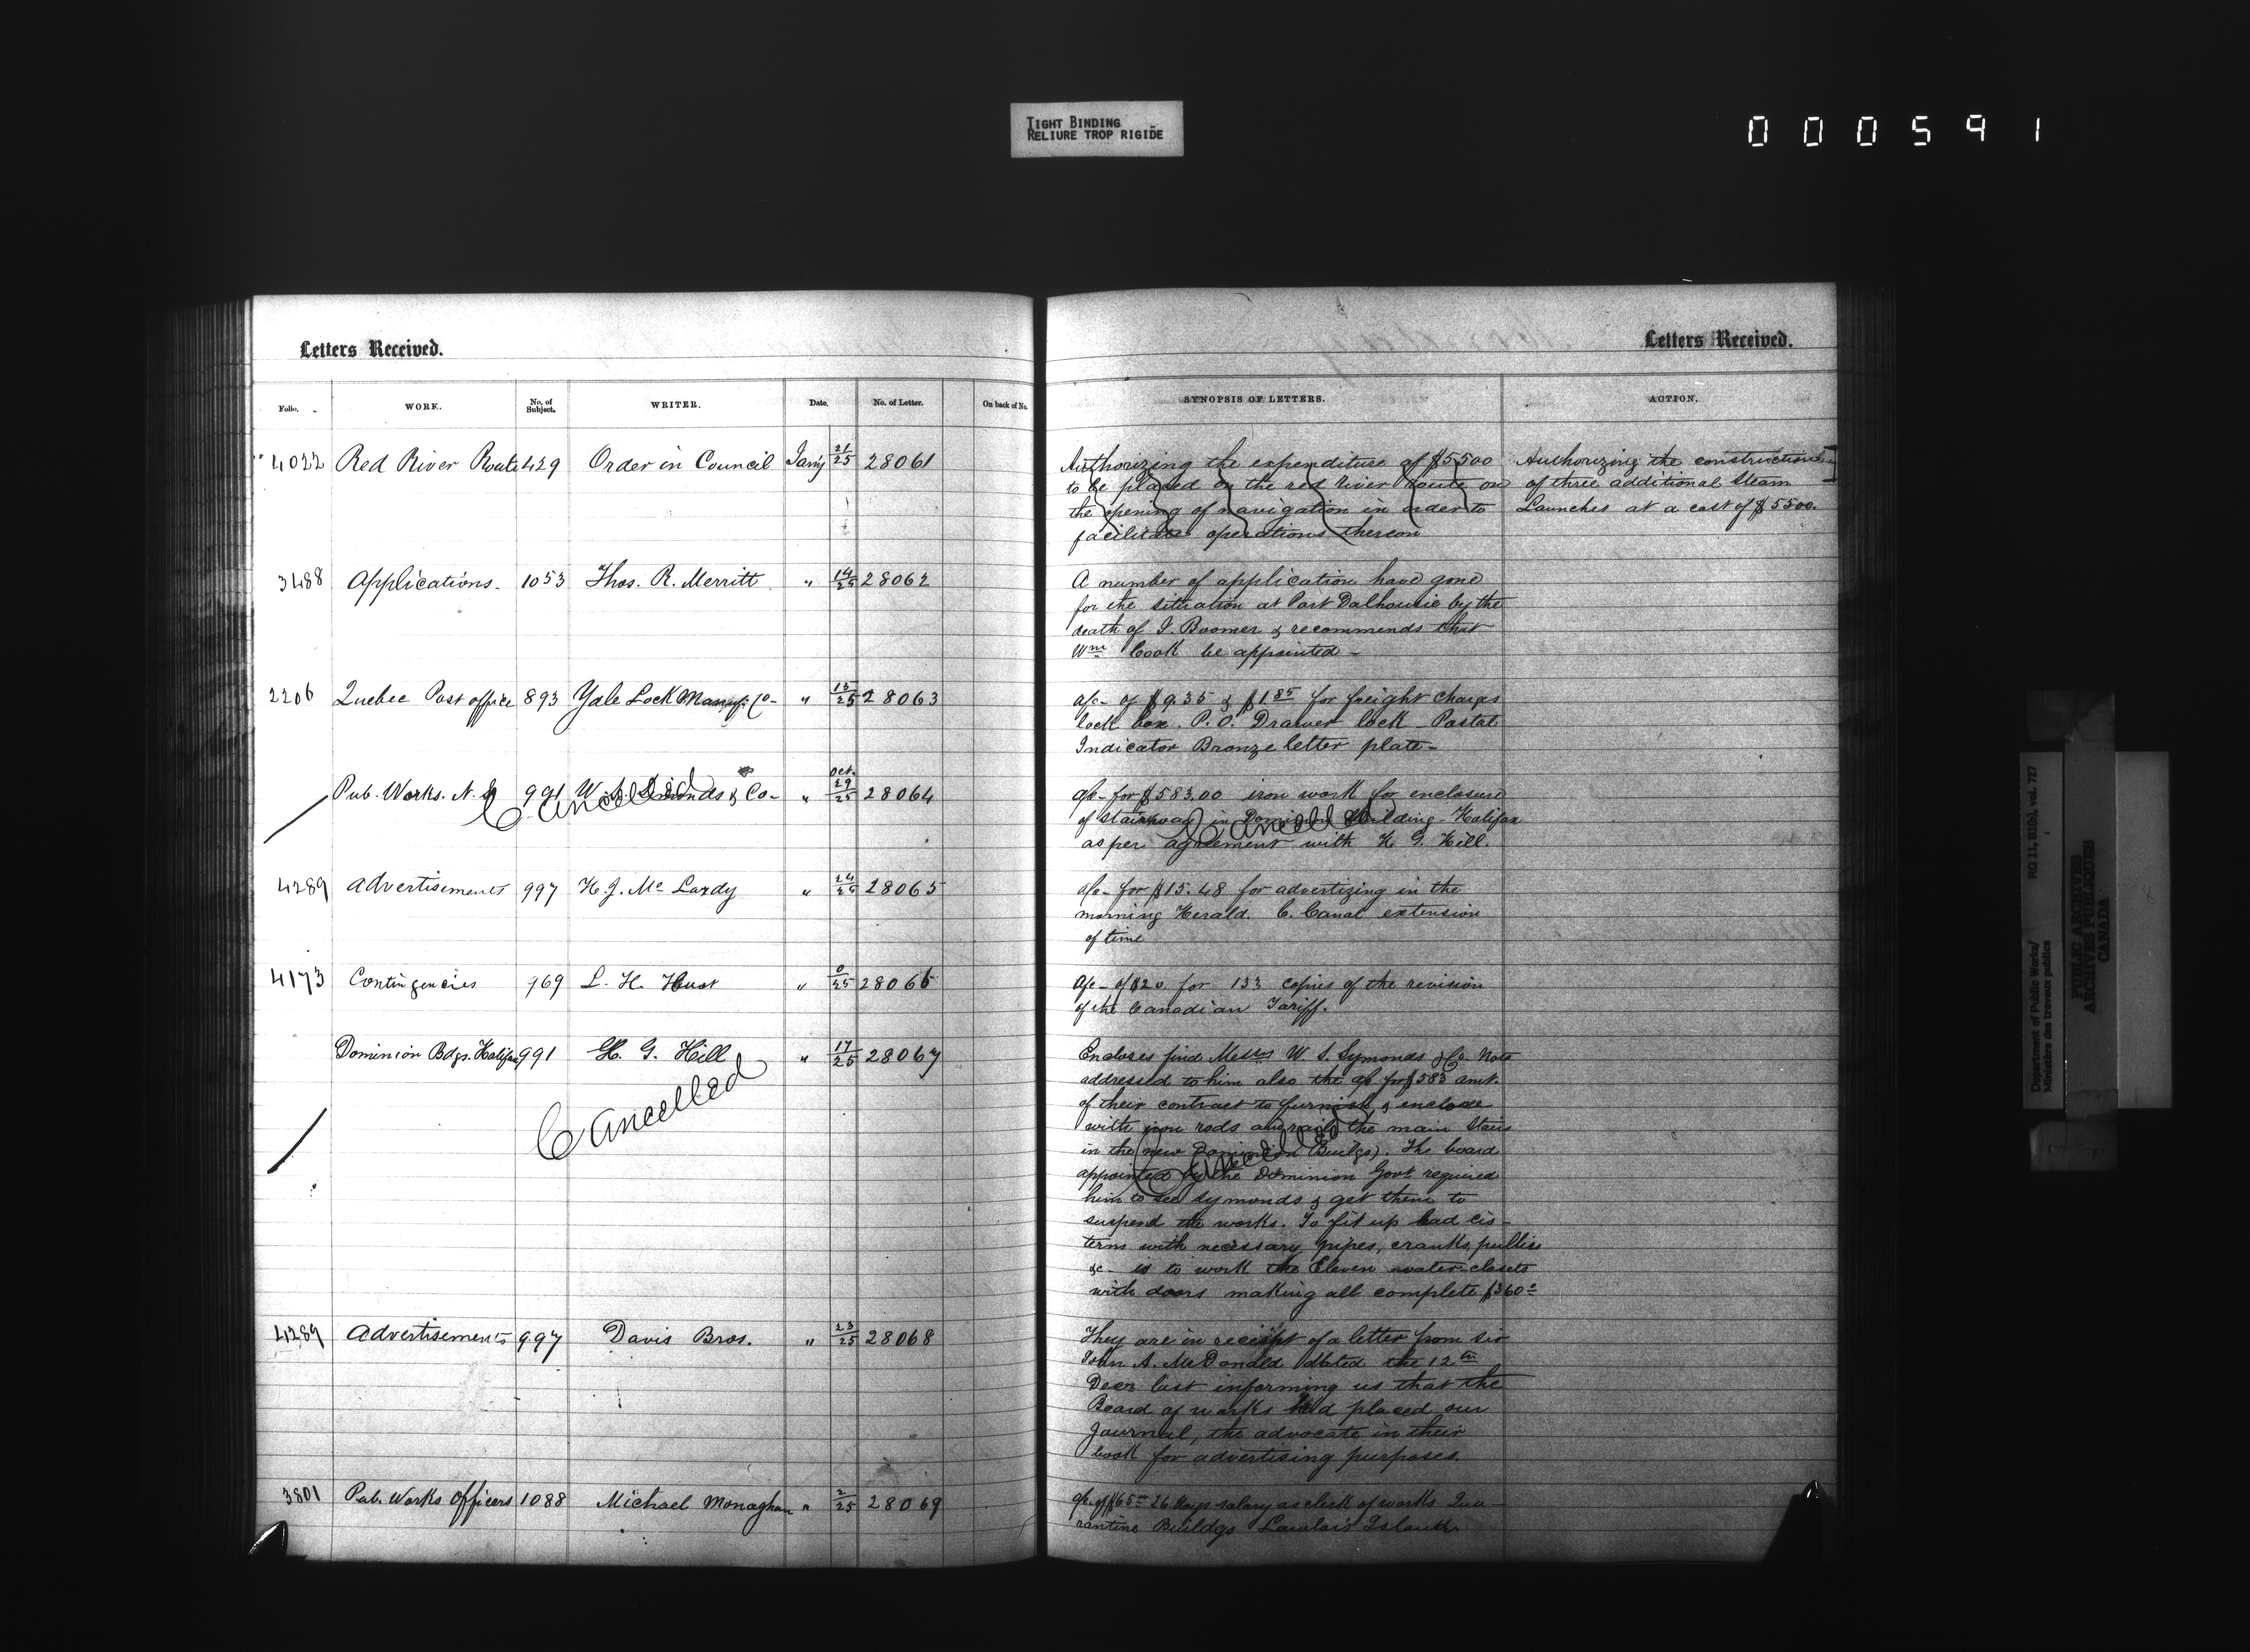 TIGHT BINDING
RELIURE TROP RIGIDE
000591
Letters Received.
Folio. WORK. No. of Subject. WRITER. Date. No. of Letter. On back of No.
4022 Red River Route 429 Order in Council Jany 21/25 28061
3488 Applications. 1053 Thos. R. Merritt " 14/25 28062
2206 Quebec Post office 893 Yale Lock Manuf. Co- " 13/25 28063
Pub. Works. N. S 991 W. S. Symonds & Co- " Oct. 29/25 28064
Cancelled
4289 Advertisements 997 H. J. Mc Lardy " 24/25 28065
4173 Contingencies 969 L. H. Huot " 0/25 28066
Dominion Bdgs. Halifax 991 H. G. Hill " 17/25 28067
Cancelled
4289 Advertisements 997 Davis Bros. " 23/25 28068
3801 Pub. Works Officers 1088 Michael Monaghan " 2/25 28069
Letters Received.
SYNOPSIS OF LETTERS. ACTION.
Authorizing the expenditure of $5500 Authorizing the construction
to be placed on the red river route on of three additional Steam
the opening of navigation in order to Launches at a cost of $5500.
facilitate operations thereon
A number of application have gone
for the situation at Port Dalhousie by the
death of J. Boomer & recommends that
Wm Cook be appointed -
a/c- of $9.35 & $1.85 for freight charges
lock box. P.O. Drawer lock Postal
Indicator Bronze letter plate-
a/c- for $583.00 iron work for enclosure
of stairway in Dominion Building - Halifax
as per agreement with H. G. Hill.
Cancelled
a/c- for $15.48 for advertizing in the
morning Herald. C. Canal extension
of time
a/c- of $20. for 133 copies of the revision
of the Canadian Tariff.
Encloses find Messrs W. S. Symonds & Co. Note
addressed to him also the a/c for $583 amt.
of their contract to furnish & enclose
with iron rods and rail the main Stairs
in the new Dominion Buildgs). The board
appointed by the Dominion Govt required
him to see Symonds & get them to
suspend the works. To fit up lead cis-
terns with necessary pipes, cranks, pullies
&c- to work the Eleven water-closets
with doors making all complete $360-
Cancelled
They are in receipt of a letter from sir
John A. McDonald dated the 12th
Decr last informing us that the
Board of works had placed our
Journal, the advocate in their
book for advertising purposes.
a/c- of $65- 26 days salary as clerk of works Qua-
rantine Buildgs Lawlor's Island.
Department of Public Works/ RG 11, B1(b), vol. 727
Ministère des travaux publics
PUBLIC ARCHIVES
ARCHIVES PUBLIQUES
CANADA